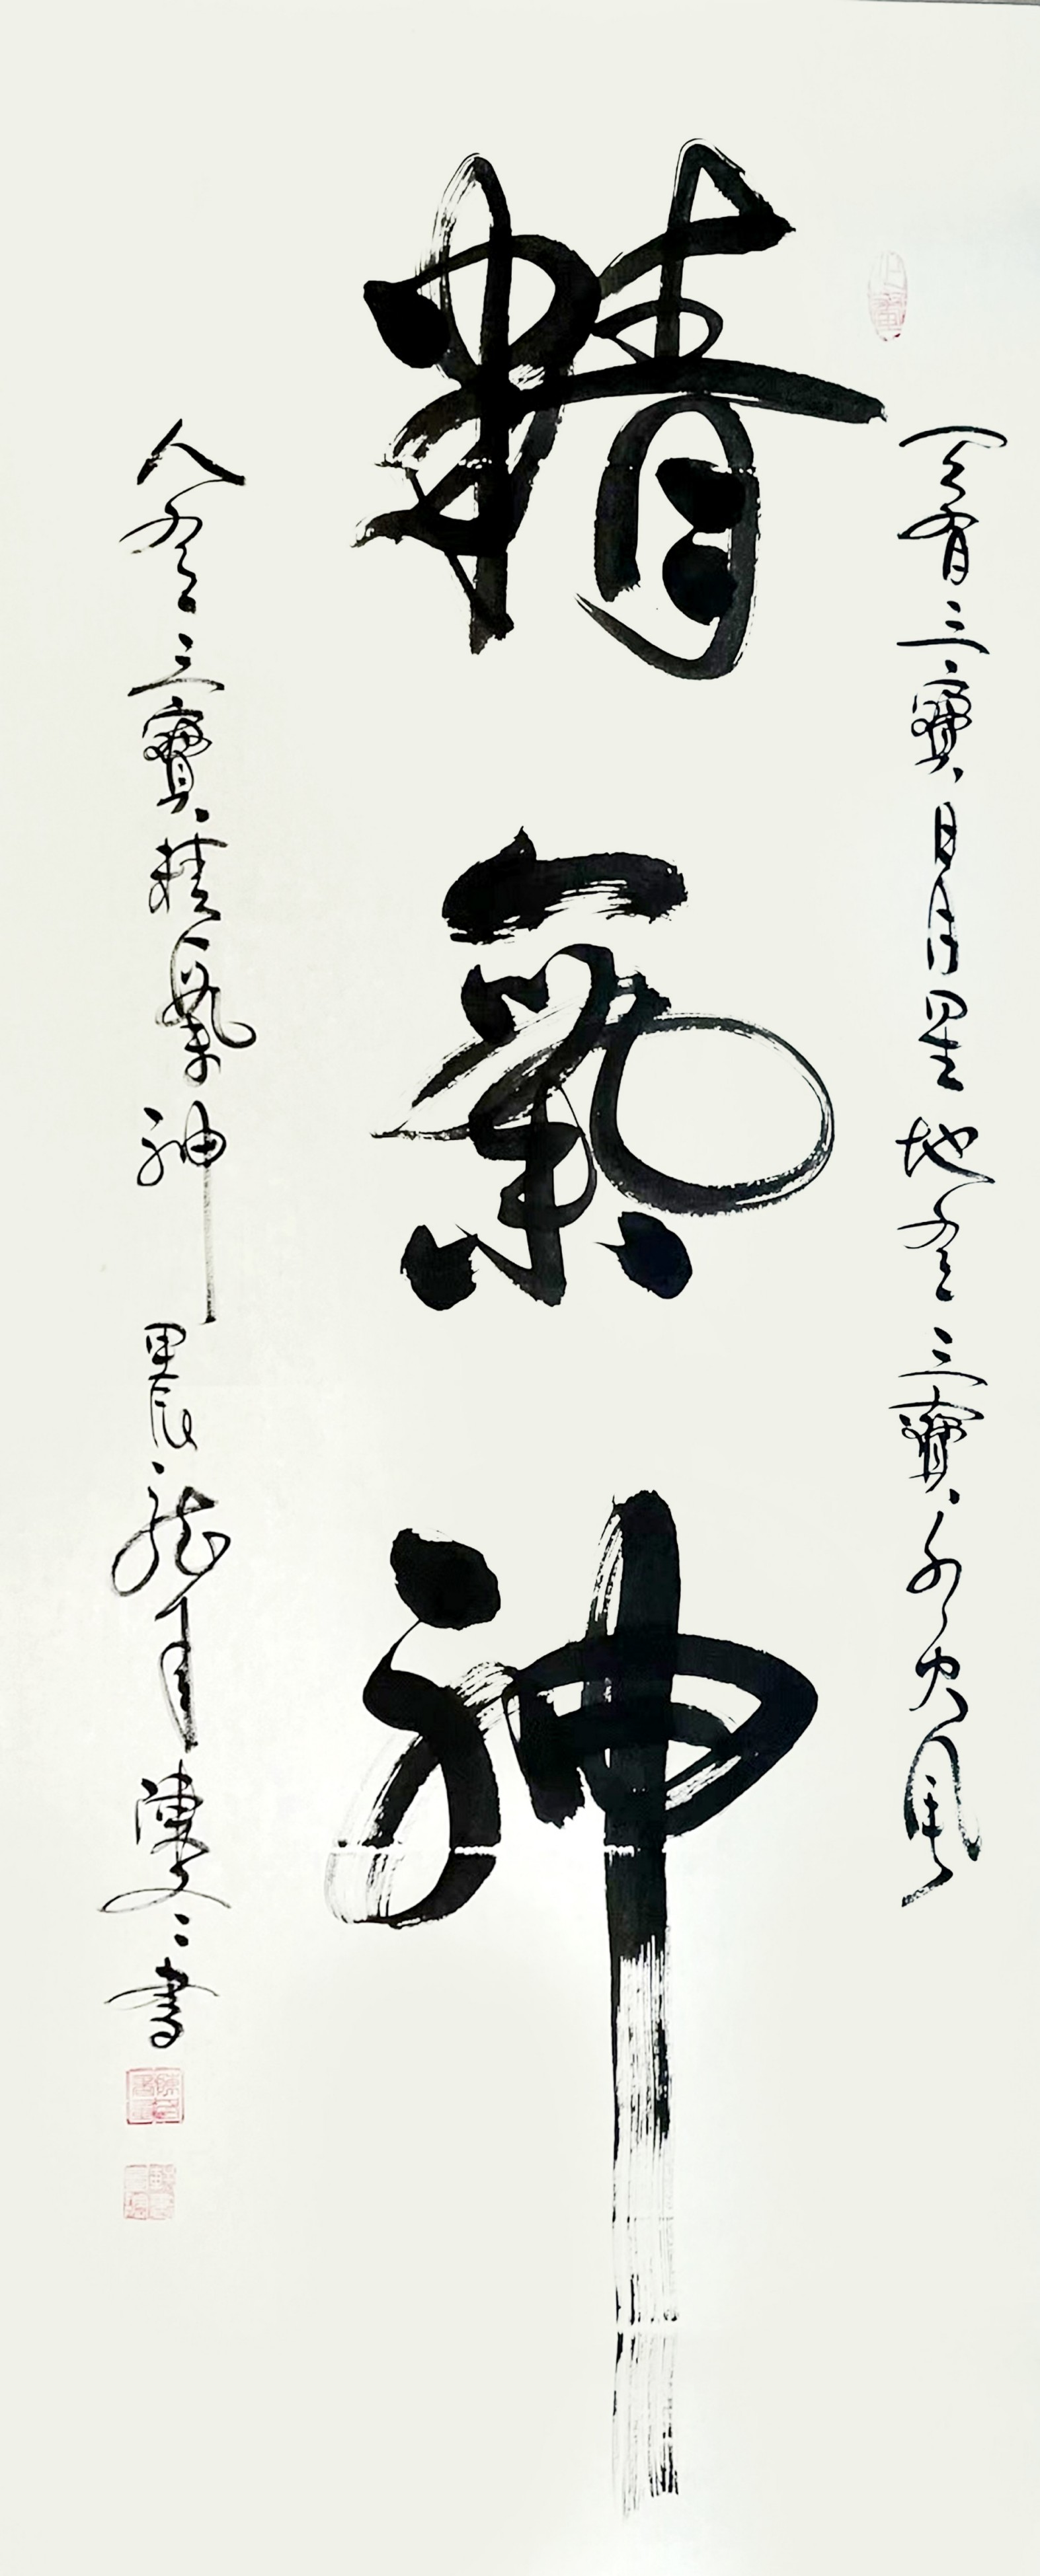 天有三寶日月星地有三寶水火風
精氣神
人有三寶精氣神甲辰龍年陳文二書